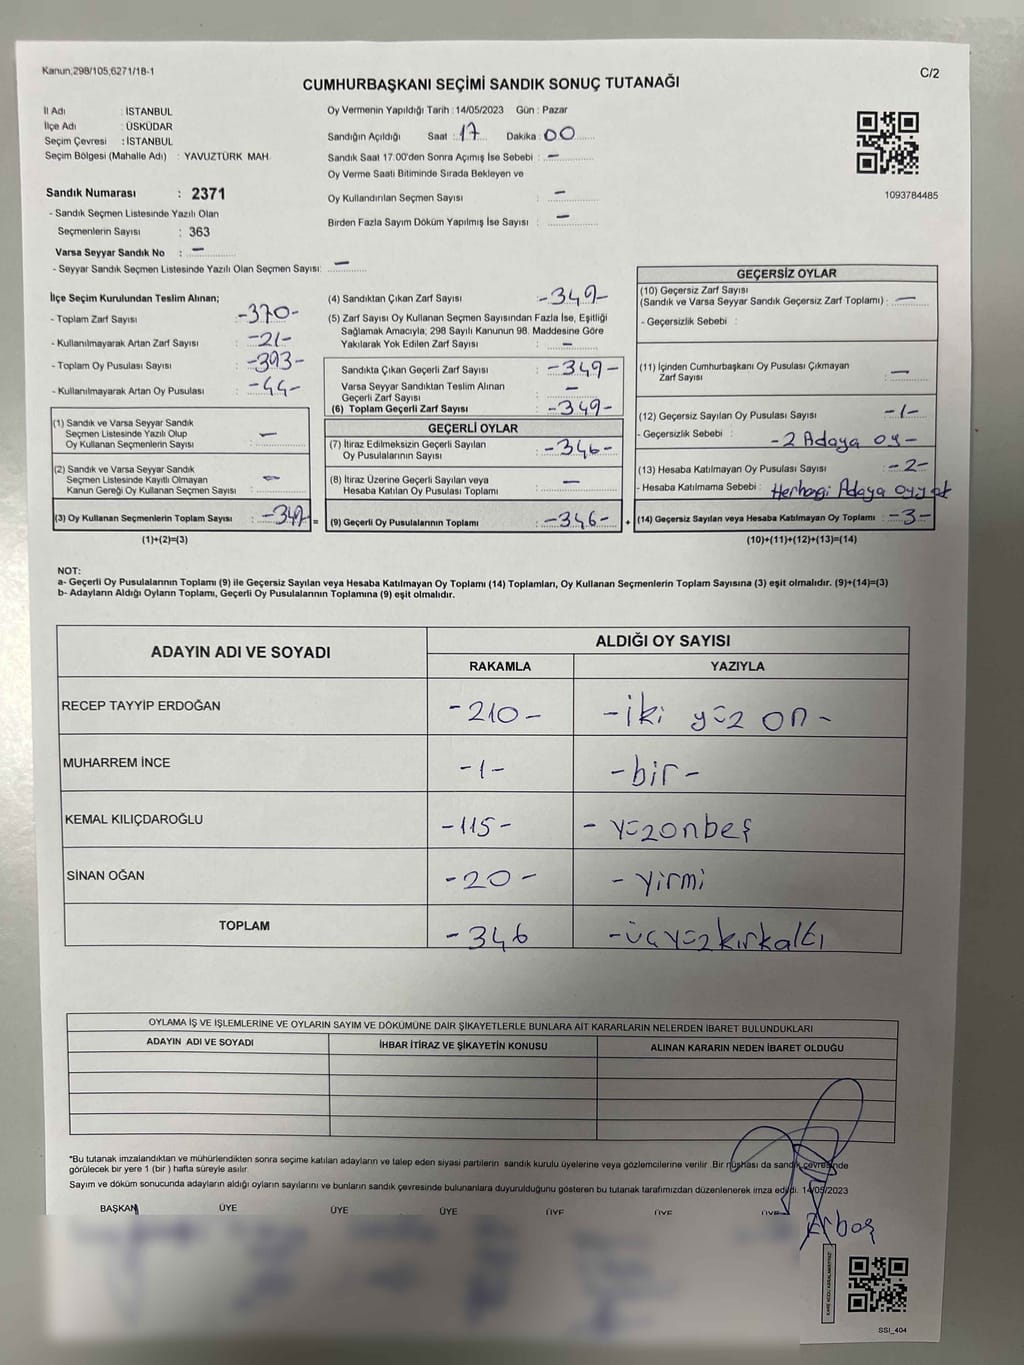 Kanun,298/105,6271/18-1
C/2
CUMHURBAŞKANI SEÇİMİ SANDIK SONUÇ TUTANAĞI
İl Adı : İSTANBUL
İlçe Adı : ÜSKÜDAR
Seçim Çevresi : İSTANBUL
Seçim Bölgesi (Mahalle Adı) : YAVUZTÜRK MAH.
Sandık Numarası : 2371
- Sandık Seçmen Listesinde Yazılı Olan
Seçmenlerin Sayısı : 363
Varsa Seyyar Sandık No : -
- Seyyar Sandık Seçmen Listesinde Yazılı Olan Seçmen Sayısı: -
Oy Vermenin Yapıldığı Tarih : 14/05/2023 Gün : Pazar
Sandığın Açıldığı Saat : 17 Dakika : 00
Sandık Saat 17.00'den Sonra Açımış İse Sebebi : -
Oy Verme Saati Bitiminde Sırada Bekleyen ve
Oy Kullandırılan Seçmen Sayısı : -
Birden Fazla Sayım Döküm Yapılmış İse Sayısı : -
1093784485
İlçe Seçim Kurulundan Teslim Alınan;
- Toplam Zarf Sayısı : -370-
- Kullanılmayarak Artan Zarf Sayısı : -21-
- Toplam Oy Pusulası Sayısı : -393-
- Kullanılmayarak Artan Oy Pusulası : -44-
(1) Sandık ve Varsa Seyyar Sandık
Seçmen Listesinde Yazılı Olup
Oy Kullanan Seçmenlerin Sayısı : -
(2) Sandık ve Varsa Seyyar Sandık
Seçmen Listesinde Kayıtlı Olmayan
Kanun Gereği Oy Kullanan Seçmen Sayısı : -
(3) Oy Kullanan Seçmenlerin Toplam Sayısı : -349- =
(1)+(2)=(3)
(4) Sandıktan Çıkan Zarf Sayısı : -349-
(5) Zarf Sayısı Oy Kullanan Seçmen Sayısından Fazla İse, Eşitliği
Sağlamak Amacıyla, 298 Sayılı Kanunun 98. Maddesine Göre
Yakılarak Yok Edilen Zarf Sayısı : -
Sandıkta Çıkan Geçerli Zarf Sayısı : -349-
Varsa Seyyar Sandıktan Teslim Alınan
Geçerli Zarf Sayısı : -
(6) Toplam Geçerli Zarf Sayısı : -349-
GEÇERLİ OYLAR
(7) İtiraz Edilmeksizin Geçerli Sayılan
Oy Pusulalarının Sayısı : -346-
(8) İtiraz Üzerine Geçerli Sayılan veya
Hesaba Katılan Oy Pusulası Toplamı : -
(9) Geçerli Oy Pusulalarının Toplamı : -346- +
GEÇERSİZ OYLAR
(10) Geçersiz Zarf Sayısı
(Sandık ve Varsa Seyyar Sandık Geçersiz Zarf Toplamı) : -
- Geçersizlik Sebebi :
(11) İçinden Cumhurbaşkanı Oy Pusulası Çıkmayan
Zarf Sayısı : -
(12) Geçersiz Sayılan Oy Pusulası Sayısı : -1-
- Geçersizlik Sebebi : -2 Adaya oy-
(13) Hesaba Katılmayan Oy Pusulası Sayısı : -2-
- Hesaba Katılmama Sebebi : Herhangi Adaya oy yok
(14) Geçersiz Sayılan veya Hesaba Katılmayan Oy Toplamı : -3-
(10)+(11)+(12)+(13)=(14)
NOT:
a- Geçerli Oy Pusulalarının Toplamı (9) ile Geçersiz Sayılan veya Hesaba Katılmayan Oy Toplamı (14) Toplamları, Oy Kullanan Seçmenlerin Toplam Sayısına (3) eşit olmalıdır. (9)+(14)=(3)
b- Adayların Aldığı Oyların Toplamı, Geçerli Oy Pusulalarının Toplamına (9) eşit olmalıdır.
ADAYIN ADI VE SOYADI ALDIĞI OY SAYISI
RAKAMLA YAZIYLA
RECEP TAYYİP ERDOĞAN -210- -iki yüz on-
MUHARREM İNCE -1- -bir-
KEMAL KILIÇDAROĞLU -115- - yüzonbeş
SİNAN OĞAN -20- - yirmi
TOPLAM -346 -üçyüzkırkaltı
OYLAMA İŞ VE İŞLEMLERİNE VE OYLARIN SAYIM VE DÖKÜMÜNE DAİR ŞİKAYETLERLE BUNLARA AİT KARARLARIN NELERDEN İBARET BULUNDUKLARI
ADAYIN ADI VE SOYADI İHBAR İTİRAZ VE ŞİKAYETİN KONUSU ALINAN KARARIN NEDEN İBARET OLDUĞU
*Bu tutanak imzalandıktan ve mühürlendikten sonra seçime katılan adayların ve talep eden siyasi partilerin sandık kurulu üyelerine veya gözlemcilerine verilir .Bir nüshası da sandık çevresinde
görülecek bir yere 1 (bir ) hafta süreyle asılır.
Sayım ve döküm sonucunda adayların aldığı oyların sayılarını ve bunların sandık çevresinde bulunanlara duyurulduğunu gösteren bu tutanak tarafımızdan düzenlenerek imza edildi. 14/05/2023
BAŞKAN ÜYE ÜYE ÜYE ÜYE ÜYE ÜYE
SSI_404